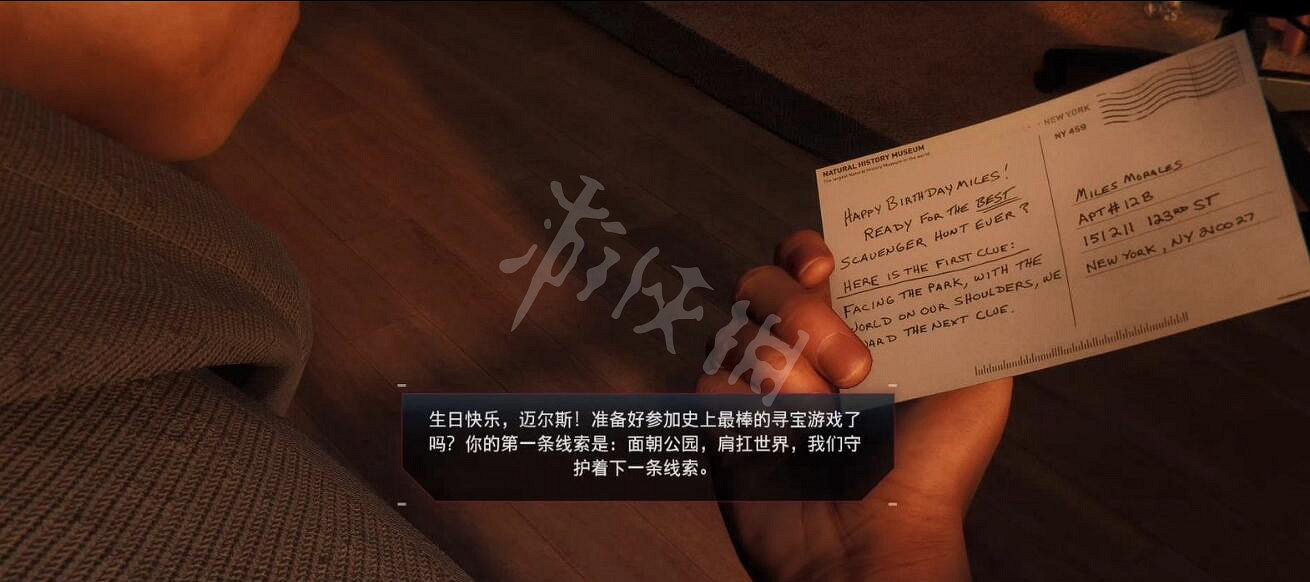 NATURAL HISTORY MUSEUM
The largest Natural History Museum in the world
HAPPY BIRTHDAY MILES!
READY FOR THE BEST
SCAVENGER HUNT EVER?
HERE IS THE FIRST CLUE:
FACING THE PARK, WITH THE
WORLD ON OUR SHOULDERS, WE
GUARD THE NEXT CLUE.
NEW YORK
NY 459
MILES MORALES
APT# 12B
151211 123RD ST
NEW YORK, NY 210027
游侠网
生日快乐，迈尔斯！准备好参加史上最棒的寻宝游戏了
吗？你的第一条线索是：面朝公园，肩扛世界，我们守
护着下一条线索。